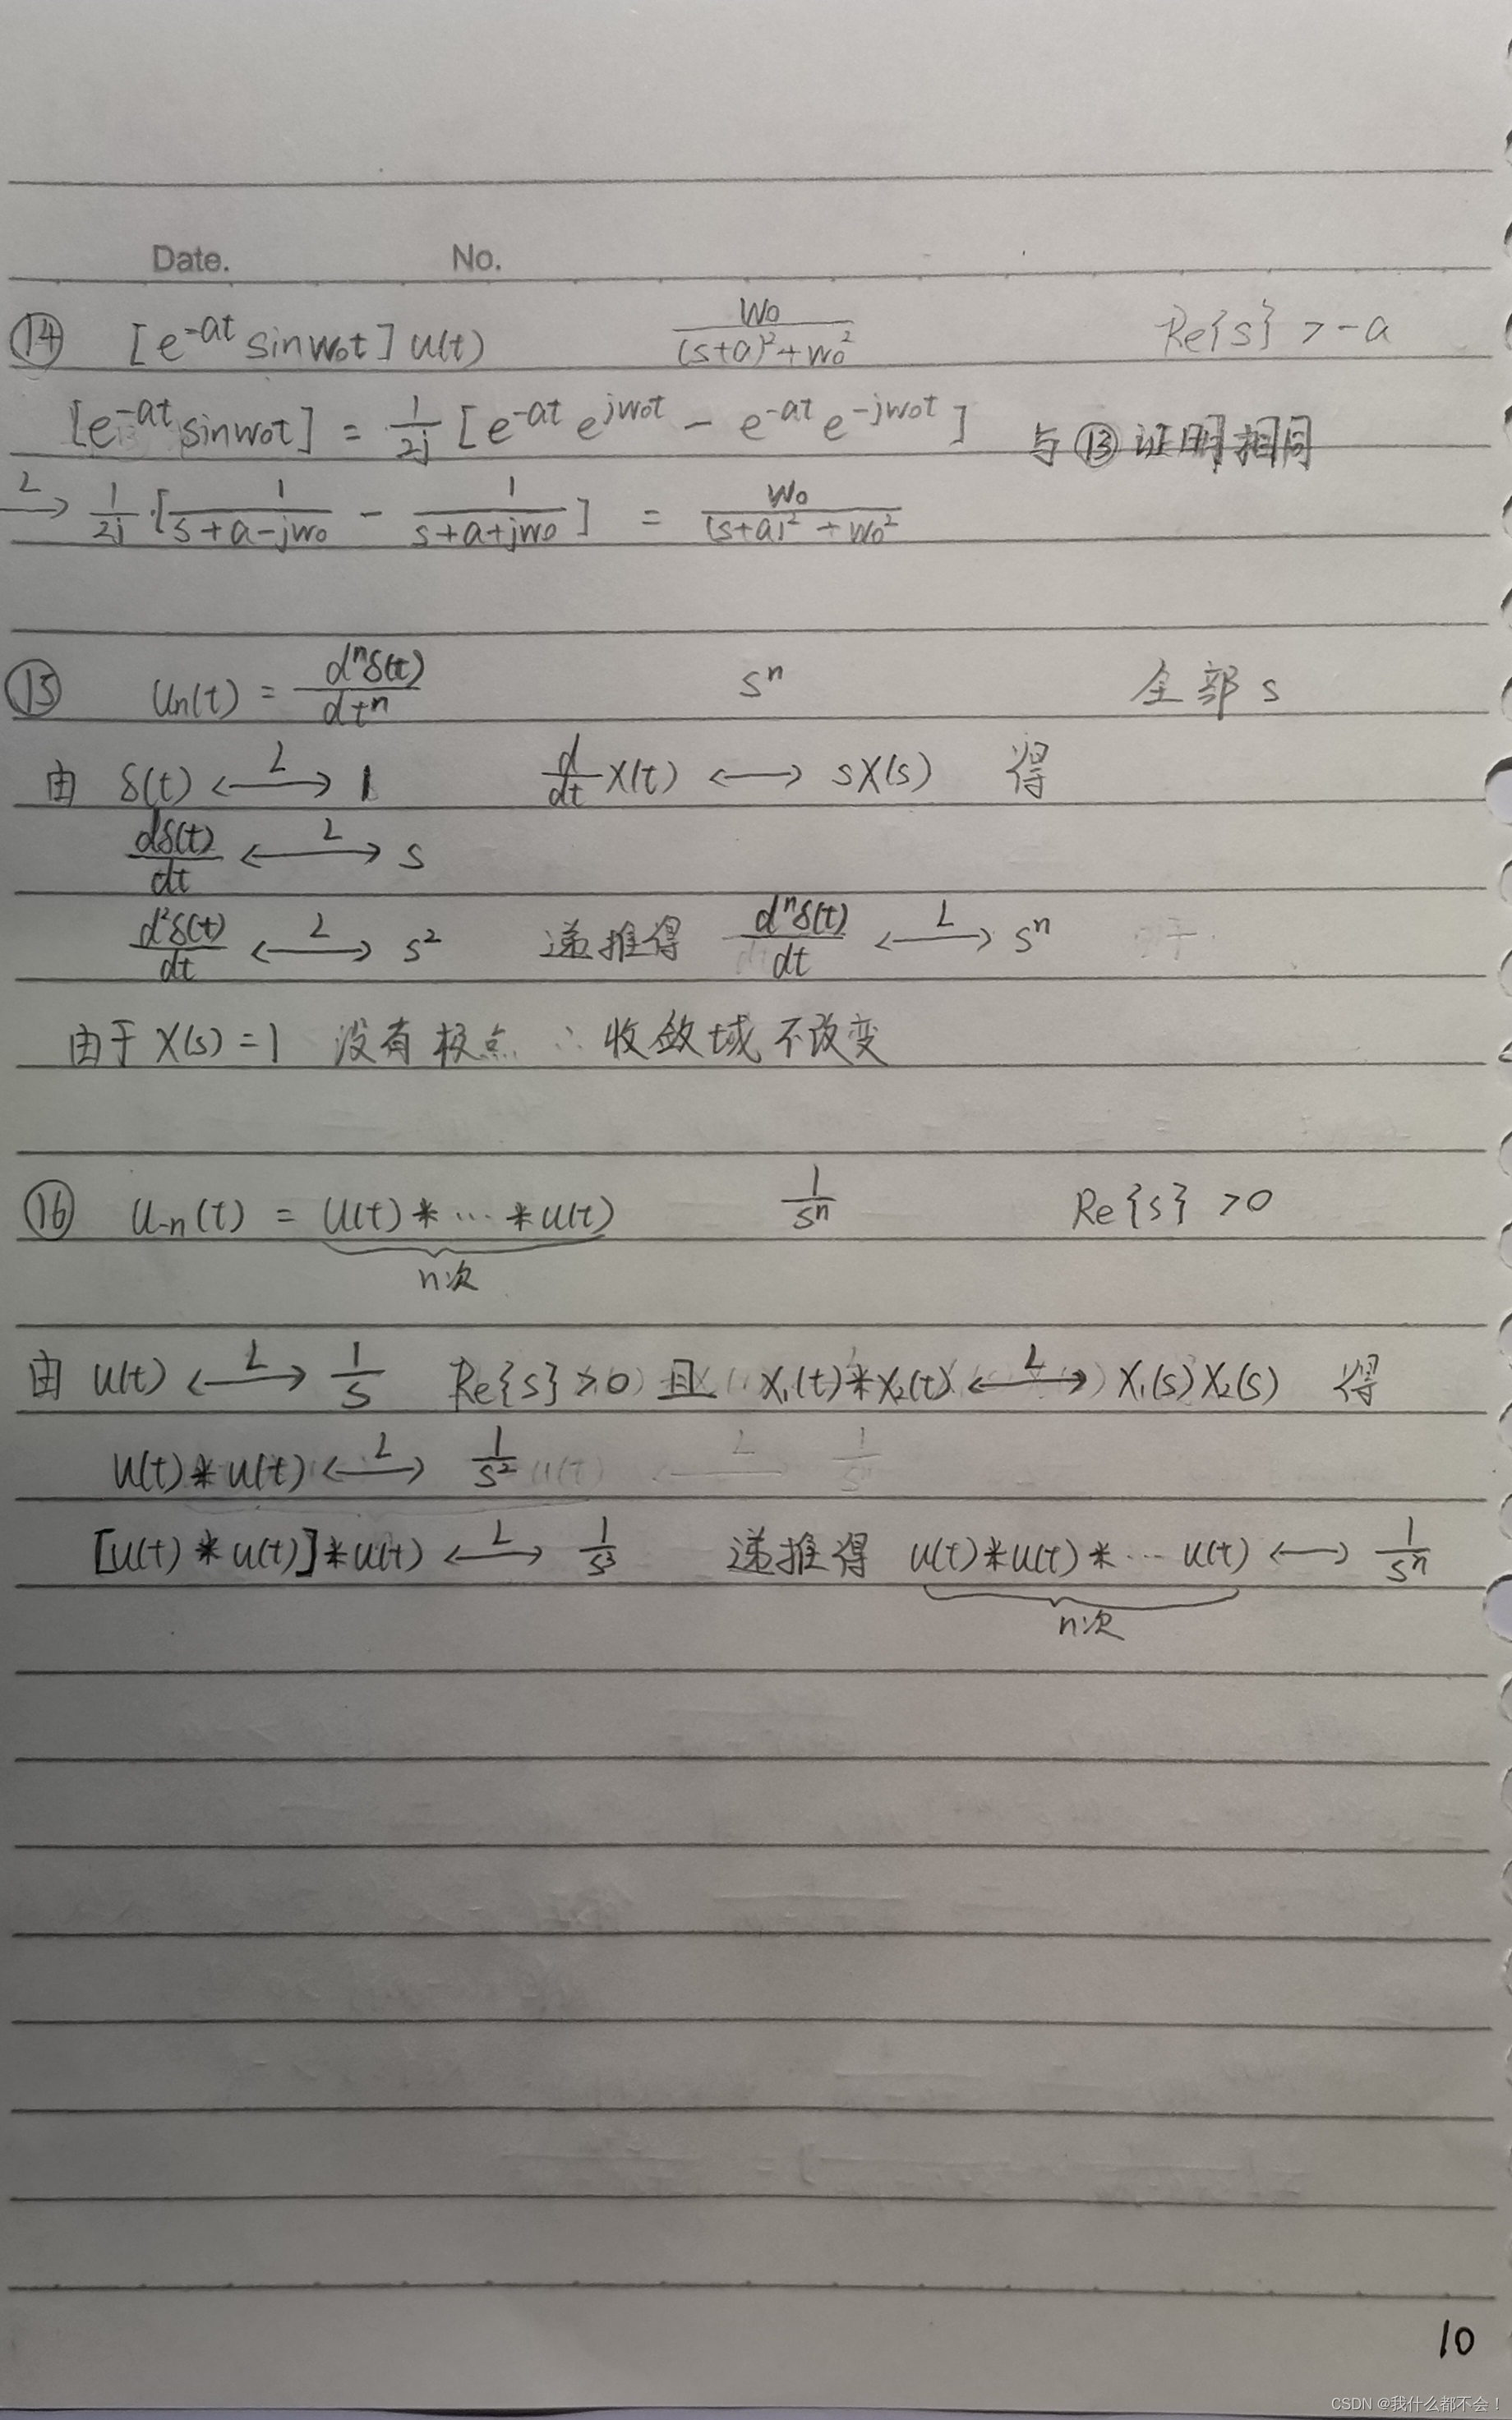 Date. No.
⑭ [e^{-at} sinw₀t] u(t) \frac{w₀}{(s+a)²+w₀²} Re{s} > -a
[e^{-at} sinw₀t] = \frac{1}{2j} [e^{-at} e^{jw₀t} - e^{-at} e^{-jw₀t}] 与⑬证明相同
\xrightarrow{L} \frac{1}{2j}·[\frac{1}{s+a-jw₀} - \frac{1}{s+a+jw₀}] = \frac{w₀}{(s+a)²+w₀²}
⑮ Uₙ(t) = \frac{dⁿδ(t)}{dtⁿ} sⁿ 全部s
由 δ(t) \xleftrightarrow{L} 1 \frac{d}{dt}X(t) ⟷ sX(s) 得
\frac{dδ(t)}{dt} \xleftrightarrow{L} s
\frac{d²δ(t)}{dt} \xleftrightarrow{L} s² 递推得 \frac{dⁿδ(t)}{dt} \xleftrightarrow{L} sⁿ
由于X(s)=1 没有极点 ∴收敛域不改变
⑯ U₋ₙ(t) = \underbrace{U(t)*…*u(t)} \frac{1}{sⁿ} Re{s} >0
n次
由 u(t) \xleftrightarrow{L} \frac{1}{s} Re{s}>0 且 X₁(t)*X₂(t) \xleftrightarrow{L} X₁(s)X₂(s) 得
u(t)*u(t) \xleftrightarrow{L} \frac{1}{s²}
[u(t)*u(t)]*u(t) \xleftrightarrow{L} \frac{1}{s³} 递推得 \underbrace{u(t)*u(t)*…u(t)} ⟷ \frac{1}{sⁿ}
n次
10
CSDN @我什么都不会！